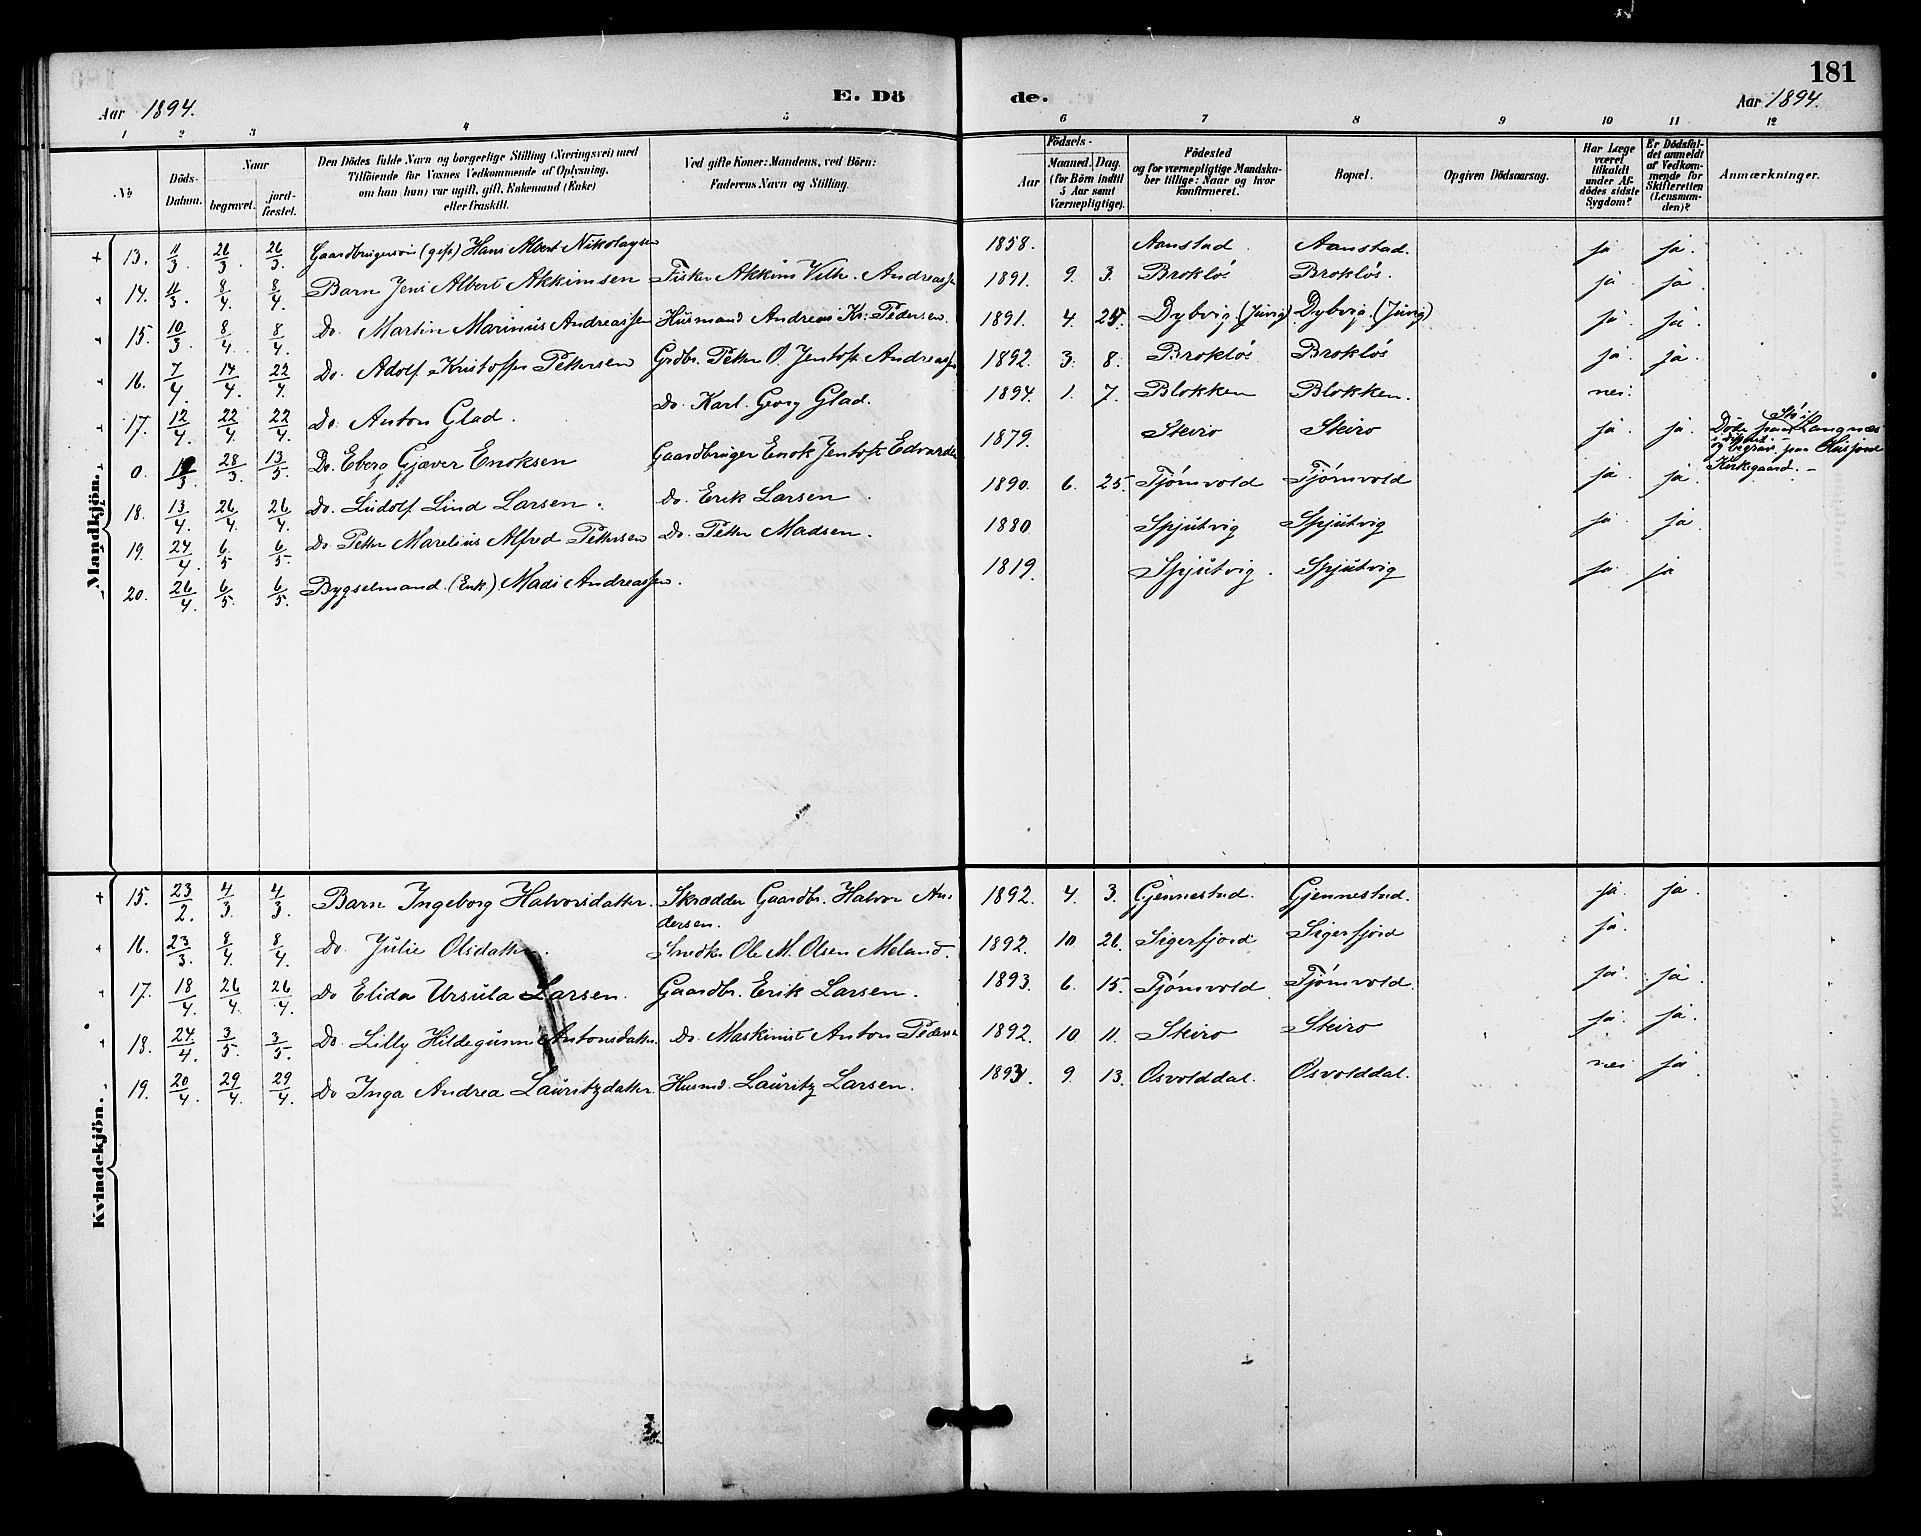 181
Aar 1894.
E. Dö
de.
Aar 1894.
1 2 3 4 5 6 7 8 9 10 11 12
No
Döds-Datum.
Naar
begravet.
jord-fæstet.
Den Dödes fulde Navn og borgerlige Stilling (Næringsvei) med
Tilföiende for Voxnes Vedkommende af Oplysning,
om han (hun) var ugift, gift, Enkemand (Enke)
eller fraskilt.
Ved gifte Koner: Mandens, ved Börn:
Faderens Navn og Stilling.
Födsels-
Aar
Maaned.
Dag.
(for Börn indtil
5 Aar samt
Værnepligtige).
Födested
og for værnepligtige Mandska-
ber tillige: Naar og hvor
konfirmeret.
Bopæl.
Opgiven Dödsaarsag.
Har Læge
været
tilkaldt
under Af-
dödes sidste
Sygdom?
Er Dödsfal-
det anmeldt
af Vedkom-
mende for
Skifteretten
(Lensman-
den)?
Anmærkninger.
Mandkjön.
13. 11/3 26/3 26/3 Gaardbrugersön (gift) Hans Albert Nikolaysen 1858. Aanstad Aanstad. ja ja.
14. 11/3 8/4 8/4 Barn Jens Albert Akkimsen Fisker Akkim Vilh. Andreassen 1891. 9. 3. Broklös Broklös. ja ja.
15. 10/3 8/4 8/4 Do. Martin Marinius Andreassen Husmand Andreas Kr. Pedersen. 1891. 4. 25. Dybvig (Jŭvig) Dybvig (Jŭvig) ja ja
16. 7/4 14/4 22/4 Do. Adolf Kristoffer Pettersen Grdbr. Petter O. Jentoft Andreassen 1892. 3. 8. Broklös Broklös ja ja.
17. 12/4 22/4 22/4 Do. Anton Glad. Do. Karl Georg Glad. 1894. 1. 7. Blokken Blokken. nei.
0. 19/3 28/3 13/5 Do. Eberg Gjæver Enoksen Gaardbruger Enok Jentoft Edvardsen 1879. Skiro Skiro ja ja. Döde paa Langnæs
og begrav. paa Husjord
Kirkegaard.
18. 13/4 26/4 26/4 Do. Lŭdolf Lind Larsen. Do. Erik Larsen. 1890. 6. 25. Tjömvold Tjömvold ja ja.
19. 24/4 6/5 6/5 Do. Petter Marelius Alfred Pettersen Do. Petter Madsen. 1880. Spjŭtvig Spjŭtvig ja ja
20. 26/4 6/5 6/5 Bygselmand. (Enk) Mads Andreassen. 1819. Spjŭtvig. Spjŭtvig ja ja
Kvindekjön.
15. 23/2 4/3 4/3 Barn Ingeborg Halvorsdatter. Skrædder Gaardbr. Halvor An-
dersen. 1892. 4. 3. Gjennestad. Gjennestad. ja. ja.
16. 23/3 8/4 8/4 Do. Julie Olsdatter. Snedker Ole M. Olsen Meland. 1892. 10. 26. Sigerfjord Sigerfjord ja.
17. 18/4 26/4 26/4 Do Elida Ursŭla Larsen. Gaardbr. Erik Larsen. 1893. 6. 15. Tjömvold Tjömvold. ja. ja
18. 24/4 3/5 3/5 Do. Lilly Hildegŭnn Antonsdatter. Do. Maskinist Anton Pedersen 1892. 10. 11. Skiro Skiro ja. ja.
19. 20/4 29/4 29/4 Do Inga Andrea Laŭritzdatter. Husmd. Laŭritz Larsen. 1893. 9. 13. Osvolddal. Osvolddal. nei ja